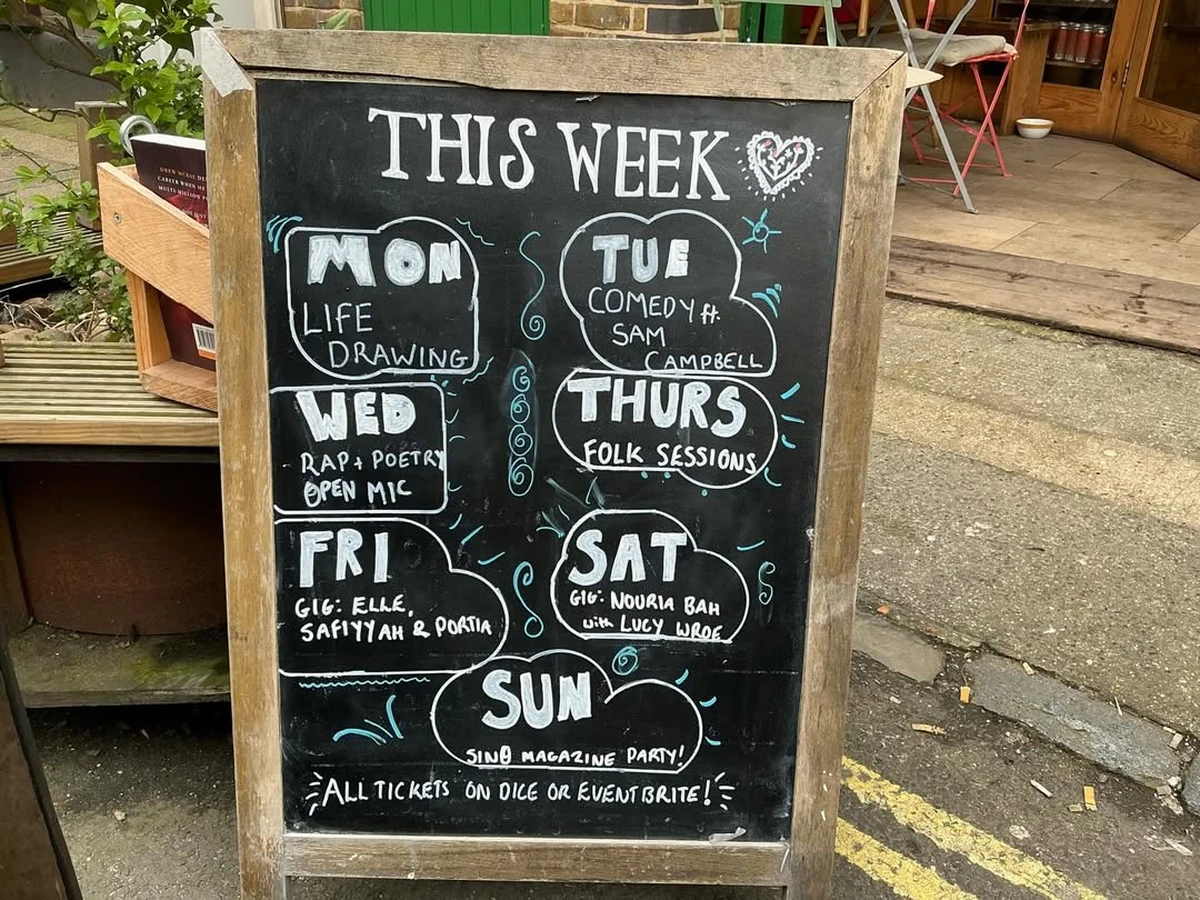 THIS WEEK
MON
LIFE
DRAWING
TUE
COMEDY ft.
SAM
CAMPBELL
WED
RAP + POETRY
OPEN MIC
THURS
FOLK SESSIONS
FRI
GIG: ELLE,
SAFIYYAH & PORTIA
SAT
GIG: NOURIA BAH
with LUCY WROE
SUN
SINθ MAGAZINE PARTY!
ALL TICKETS ON DICE OR EVENTBRITE!
CAREER WHEN HE